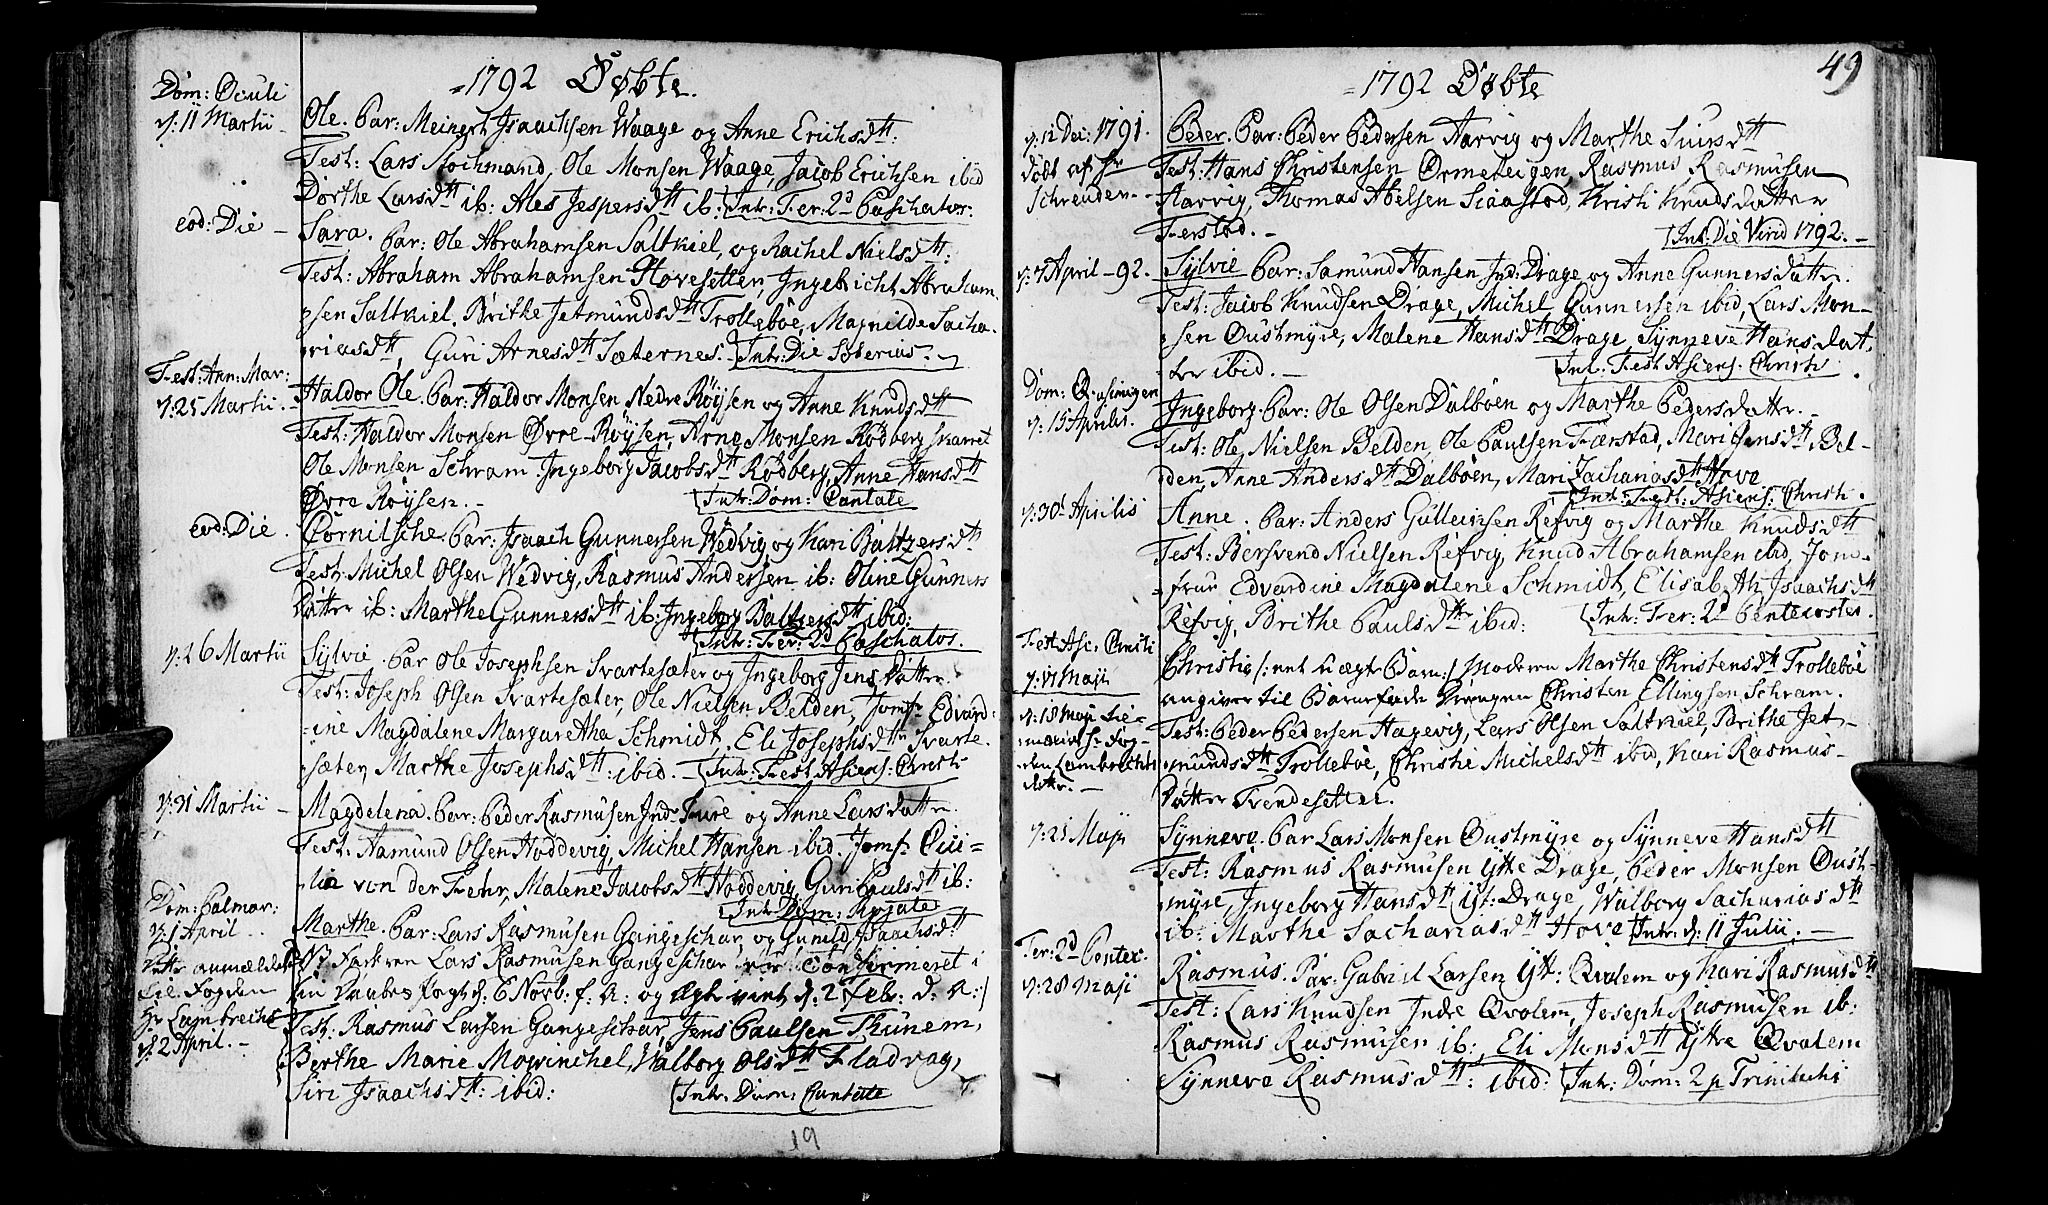 1792 Døbte.
Dom: Oculi
d: 11 Martii
Ole. Par: Meinert Isaachsen Waage og Anne Erichsdtt:
Test: Lars Stochmand, Ole Monsen Waage, Jacob Erichsen ibid
Dorthe Larsdtt ib: Ales Jespersdtt ib: Intr: Fer: 2d Paschator:
eod: Die
Sara. Par: Ole Abrahamsen Saltkiel, og Rachel Nielsdtt:
Test: Abraham Abrahamsen Hovesetter, Ingebricht Abraham-
sen Saltkiel, Brithe Jetmundsdtt Trolleböe, Magnilde Sacha-
riasdtt, Guri Arnesdtt Sæternes. Intr: Die
Fest: Ann: Mar:
d: 25 Martii.
Haldor Ole. Par: Haldor Monsen Nedre Röysen og Anne Knudsdtt
Test: Haldor Monsen Øvre-Röysen, Arne Monsen Rödberg skarret
Ole Monsen Schram Ingeborg Jacobsdtt Rödberg, Anne Hansdtt
Øvre Röysen.
Intr: Dom: Cantate
eod: Die.
Cornilsche. Par: Isaach Gunnersen Wedvig og Kari Baltzersdtt
Test: Michel Olsen Wedvig, Rasmus Andersen ib: Oline Gunners
Datter ib: Marthe Gunnersdtt ib: Ingeborg Baltzersdtt ibid:
Intr: Fer: 2d Paschatos.
d: 26 Martii
Sylvie. Par Ole Josephsen Svartesæter og Ingeborg Jens Datter.
Test: Joseph Olsen Svartesæter, Ole Nielsen Belden, Jomfr Edvard-
ine Magdalene Margaretha Schmidt, Eli Josephsdtr Svarte-
sæter, Marthe Josephsdtt: ibid. Intr: Fest Asiens: Christi
d: 31 Martii
Magdelena. Par: Peder Rasmusen Ind: Fure og Anne Larsdatter.
Test: Aamund Olsen Hoddevig, Michel Hansen ibid, Jomfr: Cici-
lia von der Fehr, Malene Jacobsdtt Hoddevig, Guri Paulsdtt ib:
Intr: Dom: Rogate
Dom: Palmar:
d: 1 April
Marthe. Par: Lars Rasmusen Gangeschar og Gunild Isaachsdtt
anmældet
til Fogden
Hr Lambrechts
d: 2 April.
NB Lars Rasmusen Gangeschar er confirmeret i
d: 6 Novb: f. A: og Ægte viet d: 2 Febr: d: A:
Test: Rasmus Larsen Gangeschar, Jens Paulsen Thunem,
Berthe Marie Mowinchel, Walborg Olsdtt Fladvag,
Siri Isaachsdtt: ibid:
Intr: Dom: Cantate
19
49
1792 Døbte
d: 12 Dec: 1791.
döbt af Hr
Schreuder
Peder. Par: Peder Pedersen Aarvig og Marthe Siursdtt
Test: Hans Christensen Ormeteigen, Rasmus Rasmusen
Aarvig, Thomas Abelsen Siaastad, Kristi Knudsdatter
Ferstad.
Intr: Die Virid 1792.
d: 7 April - 92.
Sylvie Par: Samund Hansen Ind: Drage og Anne Gunnersdatter.
Test: Jacob Knudsen Drage, Michel Gunnersen ibid, Lars Mon-
sen Oustmyre, Malene Hansdtt Drage, Synneve Hansdat-
ter ibid.
Intr: Fest Asiens: Christi
Dom: Qvasimogen
d: 15 Aprilis.
Ingeborg. Par: Ole Olsen Dalböen og Marthe Pedersdatter.
Test: Ole Nielsen Belden, Ole Paulsen Færstad, Mari Jensdtt Bel-
den, Anne Andersdtt Dalböen, Mari Zachariasdtt Hove
Intr: Fest: Asiens: Christi.
d: 30 Aprilis
Anne. Par: Anders Gulleicksen Refvig og Marthe Knudsdtt
Test: Bersvend Nielsen Refvig, Knud Abrahamsen ibid, Jom-
frue Edvardine Magdalene Schmidt, Elisabeth Isaachsdtt
Refvig, Brithe Paulsdtt ibid:
Intr: Fer: 2d Pentecostes.
Fest: Asc: Christi
d: 17 Maji
d: 18 Maji tie-
Fog-
den Lambrechts
Christie /: eet uægte Barn:/ Moderen Marthe Christensdtt Trolleböe
angiver til Barnefader Drengen Christen Ellingsen Schram.
Test: Peder Pedersen Hagevig, Lars Olsen Saltkiel, Brithe Jet-
mundsdtt Trolleböe, Christie Michelsdtt ibid, Kari Rasmus-
Datter Frendesetter.
d: 25 Maji
Synneve. Par Lars Monsen Oustmyre og Synneve Hansdtt
Test: Rasmus Rasmusen Ytte Drage, Peder Monsen Oust-
myre, Ingeborg Hansdtt Yt: Drage, Walborg Sachariasdtt
ib: Marthe Sachariasdtt Hove Intr: d: 11 Julii.
Fer: 2d Pentec:
d: 28 Maji
Rasmus. Par: Gabriel Larsen Ytt: Qvalem og Kari Rasmusdtt
Test: Lars Knudsen Indre Qvalem, Joseph Rasmusen ib:
Rasmus Rasmusen ib:, Eli Monsdtt Yttre Qvalem
Synneve Rasmusdtt: ibid: Intr: Dom: 2 p Trinitatis